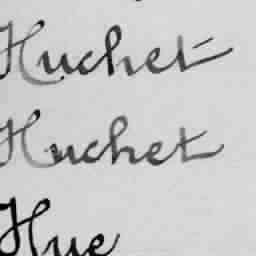 Huchet
Huchet
Hue